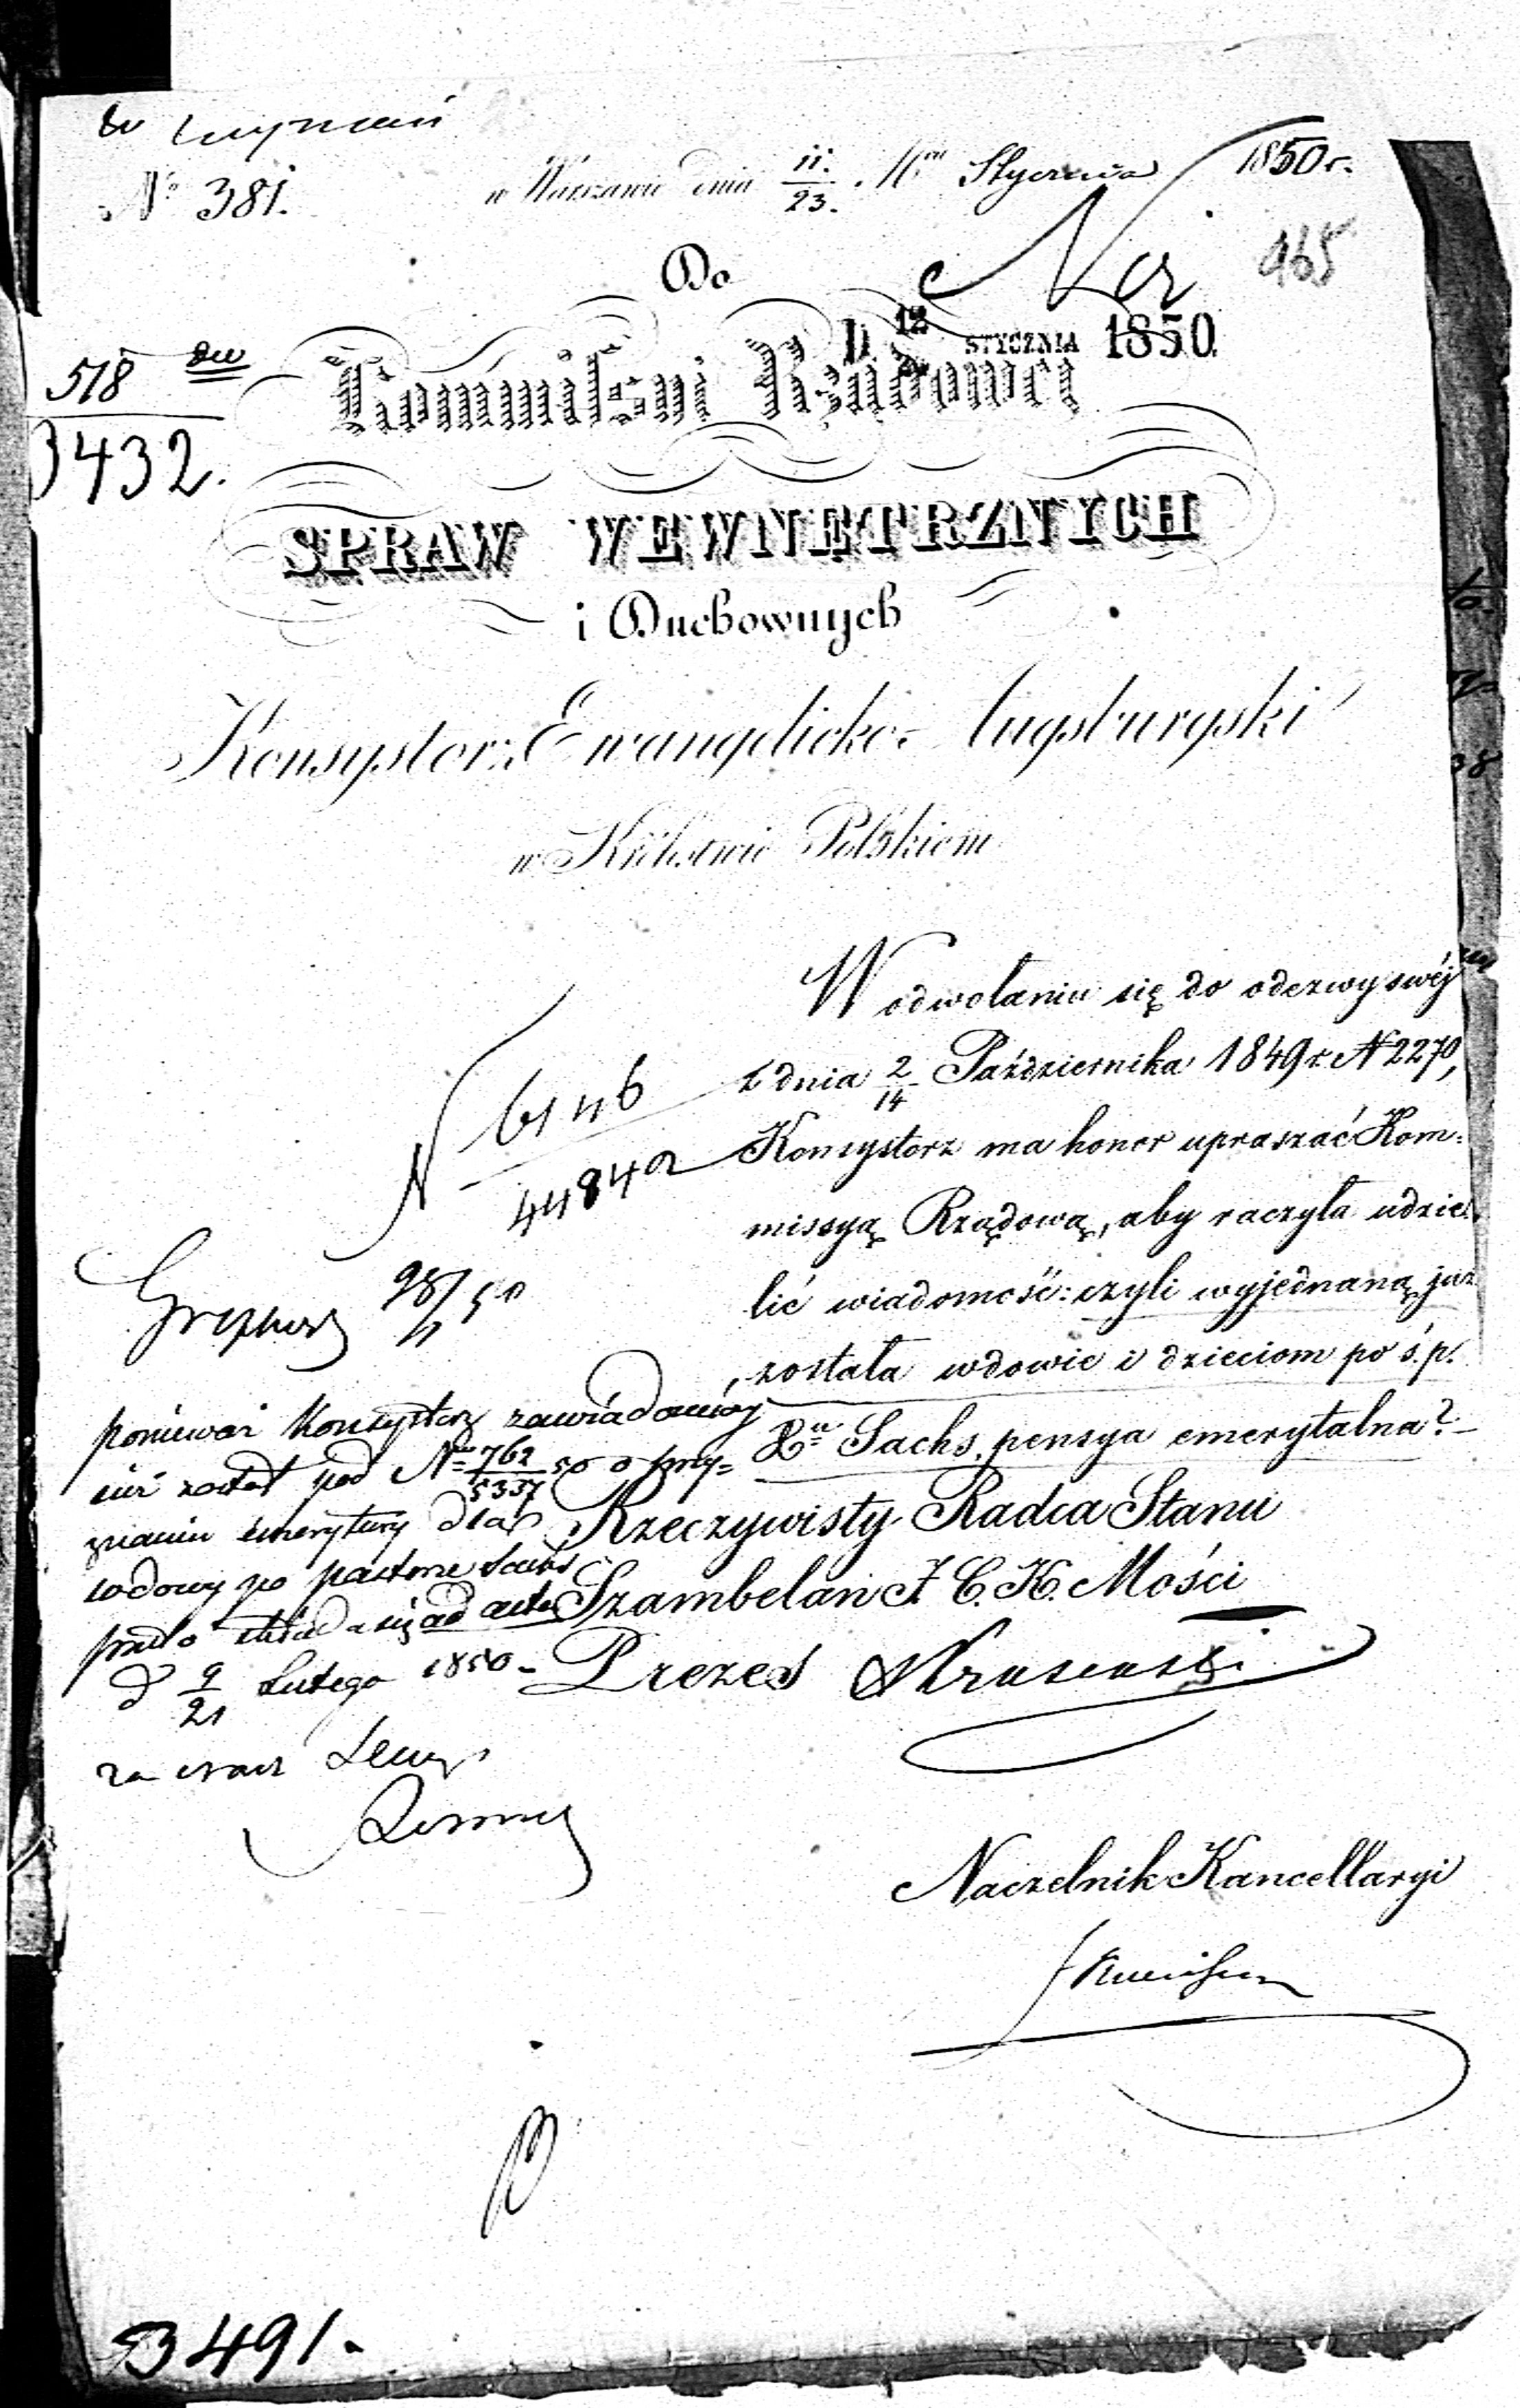 № 381.
w Warszawie dnia 11./23. Mca Stycznia 1850 r.
965
Do
D. 12 STYCZNIA 1850.
518
3432.
Kommissyi Rządowéj
SPRAW WEWNĘTRZNYCH
i Duchownych
Konsystorz Ewangelicko-Augsburgski
w Królestwie Polskiem
W odwołaniu się do odezwy swéj
z dnia 2/14 Października 1849 r. N 2270,
Konsystorz ma honor upraszać Kom-
missyą Rządową, aby raczyła udzie-
lić wiadomość: czyli wyjednaną już
została wdowie i dzieciom po ś.p.
Xu Sachs, pensya emerytalna?
N 6146/44842
98/50
ponieważ Konsystorz zawiadomiony
już został pod N 762/5337 50 o przy-
znaniu emerytury dla
wdowy po pastorze Sachs
składa się ad acta
d 9/21 Lutego 1850
Rzeczywisty Radca Stanu
Szambelan J. C. K. Mości
Prezes
Naczelnik Kancellaryi
3491.